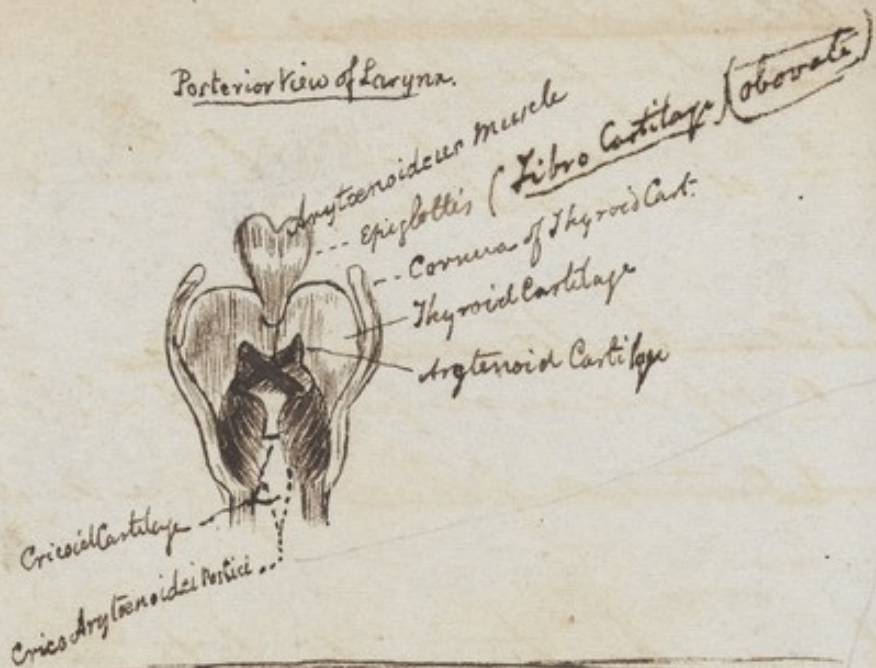 Posterior View of Larynx.
Arytœnoideus Muscle
Epiglottis (Fibro Cartilage (obovate)
Cornua of Thyroid Cart.
Thyroid Cartilage
Arytenoid Cartilage
Cricoid Cartilage
Crico Arytœnoidei Postici